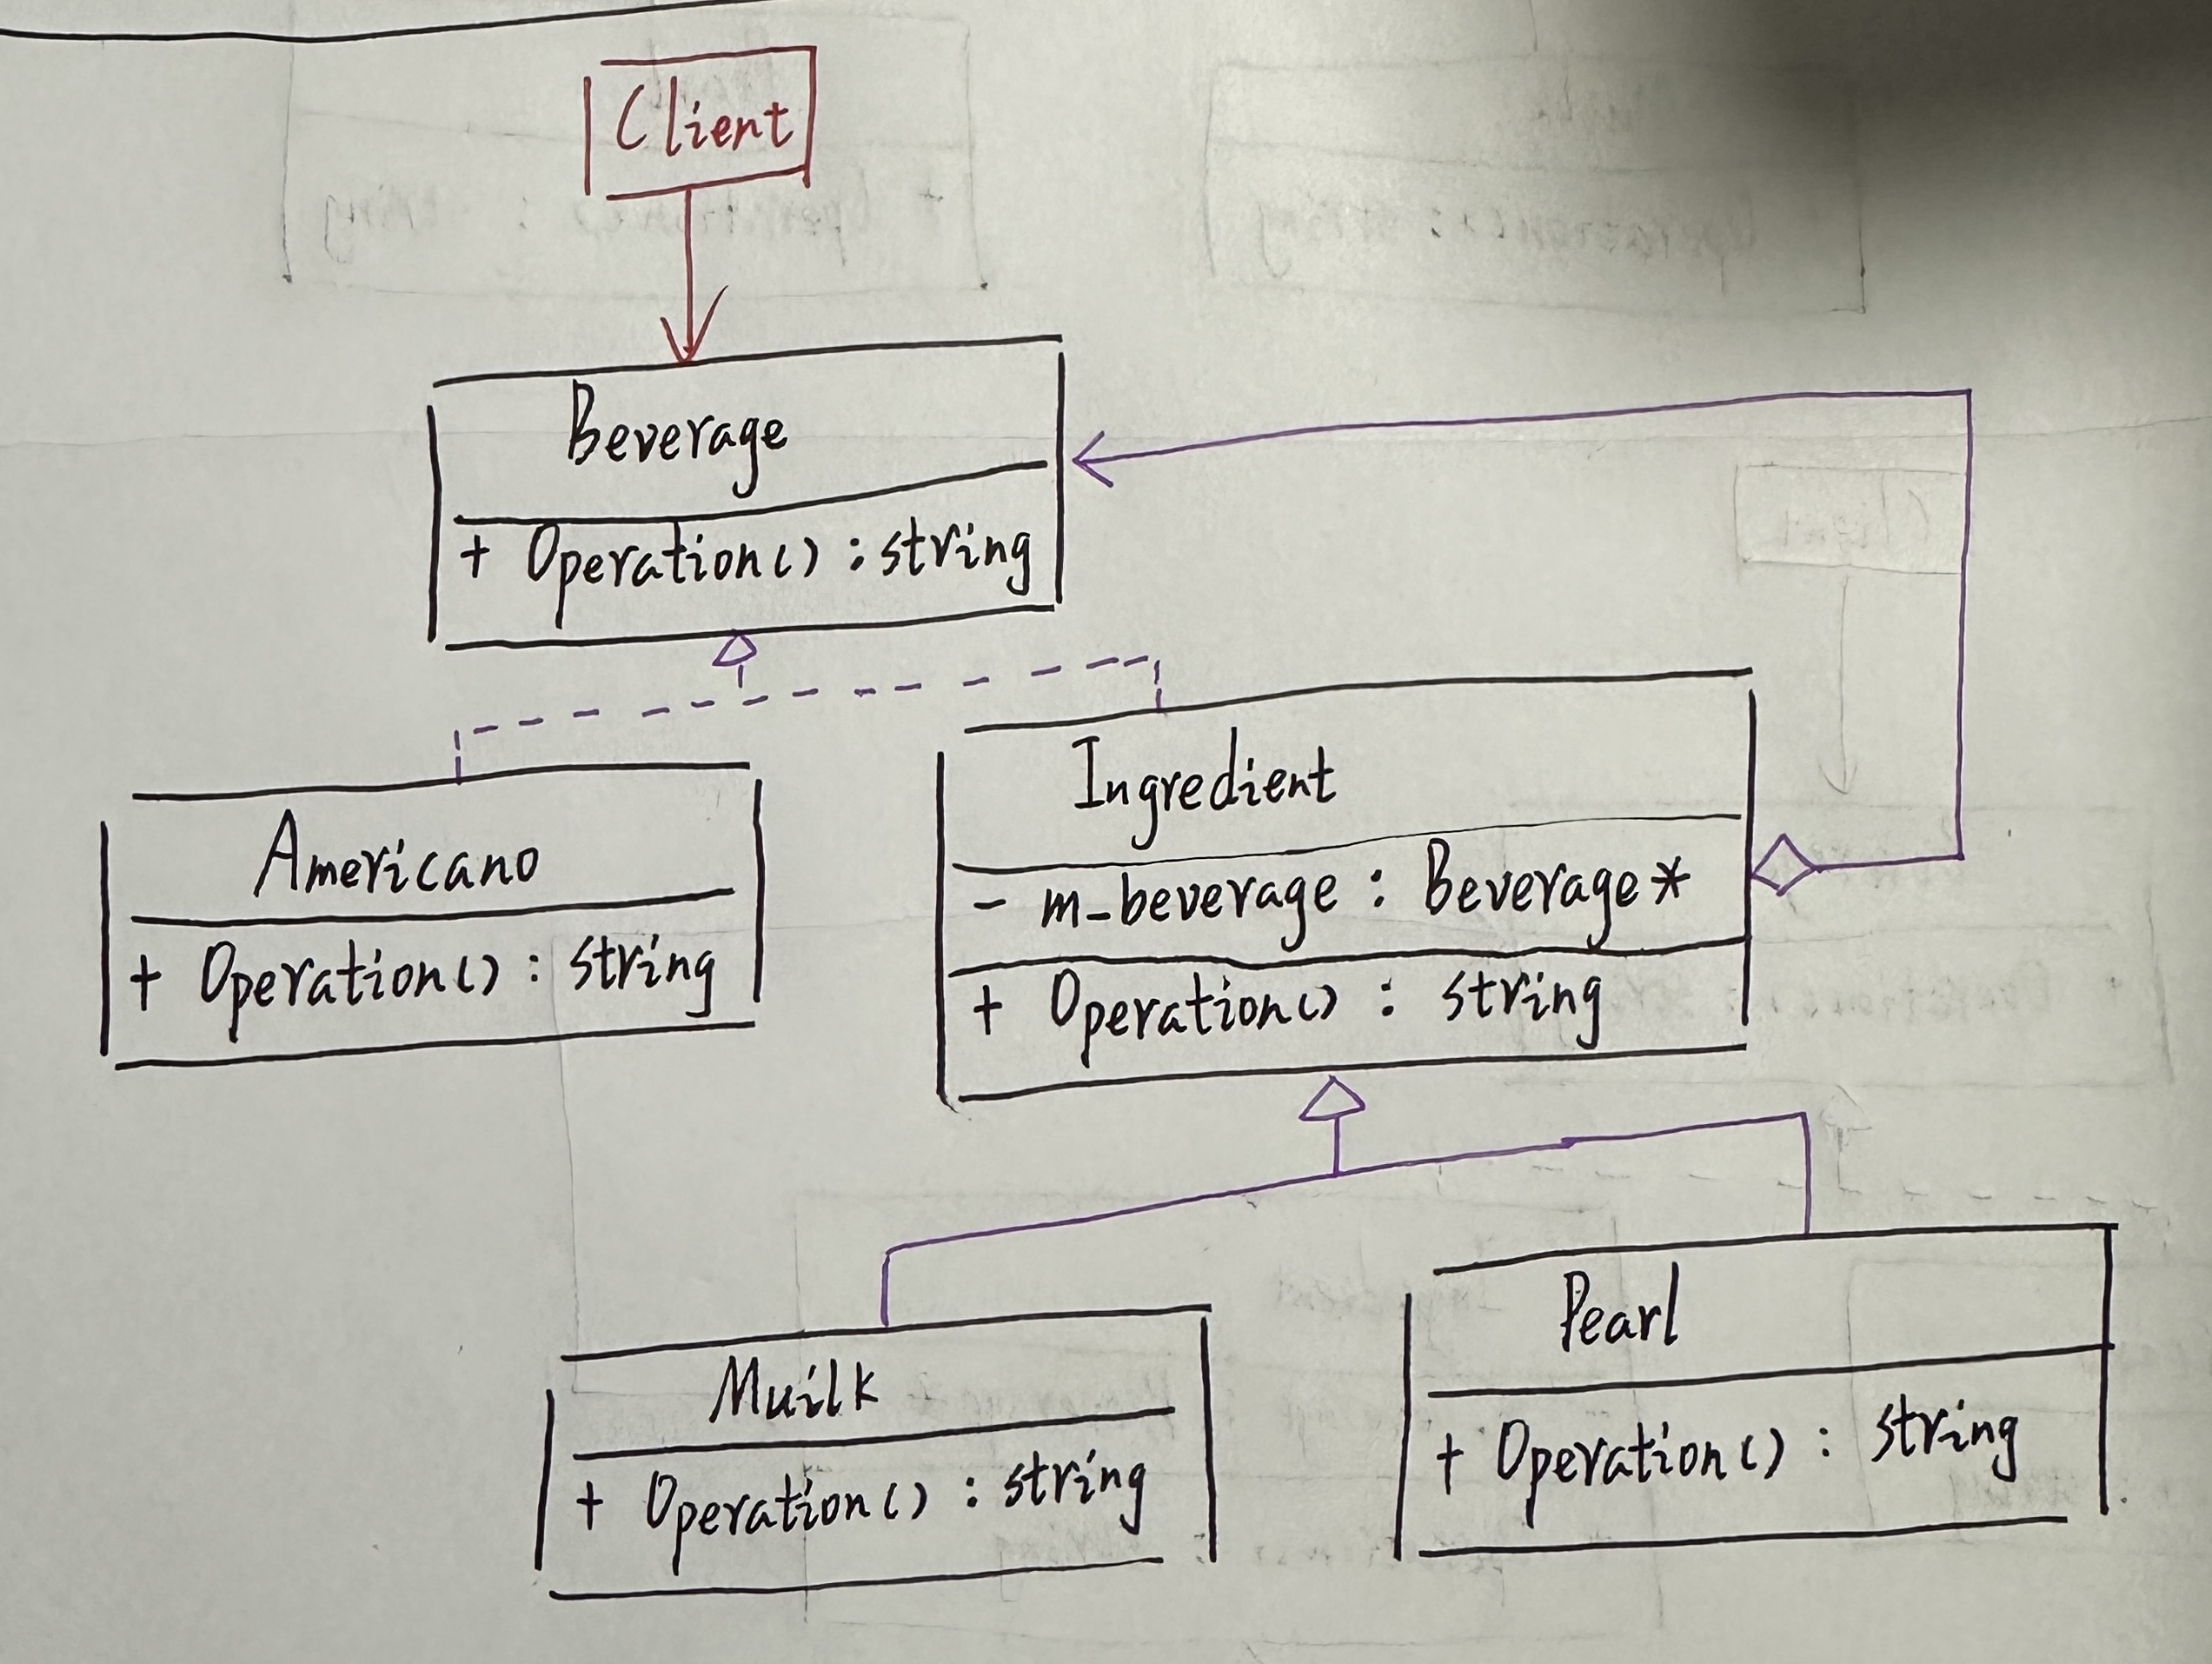 Client
Beverage
+ Operation() : string
Americano
+ Operation() : string
Ingredient
- m_beverage : Beverage*
+ Operation() : string
Muilk
+ Operation() : string
Pearl
+ Operation() : string